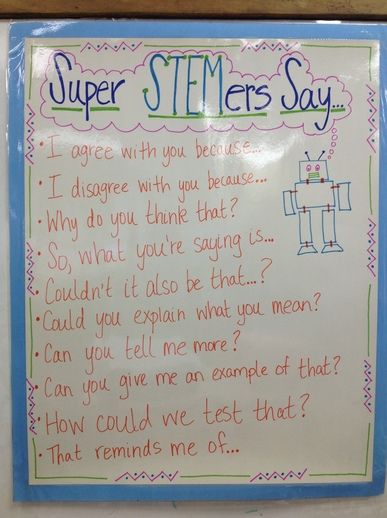 Super STEMers Say...
• I agree with you because...
• I disagree with you because...
• Why do you think that?
• So, what you're saying is...
• Couldn't it also be that...?
• Could you explain what you mean?
• Can you tell me more?
• Can you give me an example of that?
• How could we test that?
• That reminds me of...